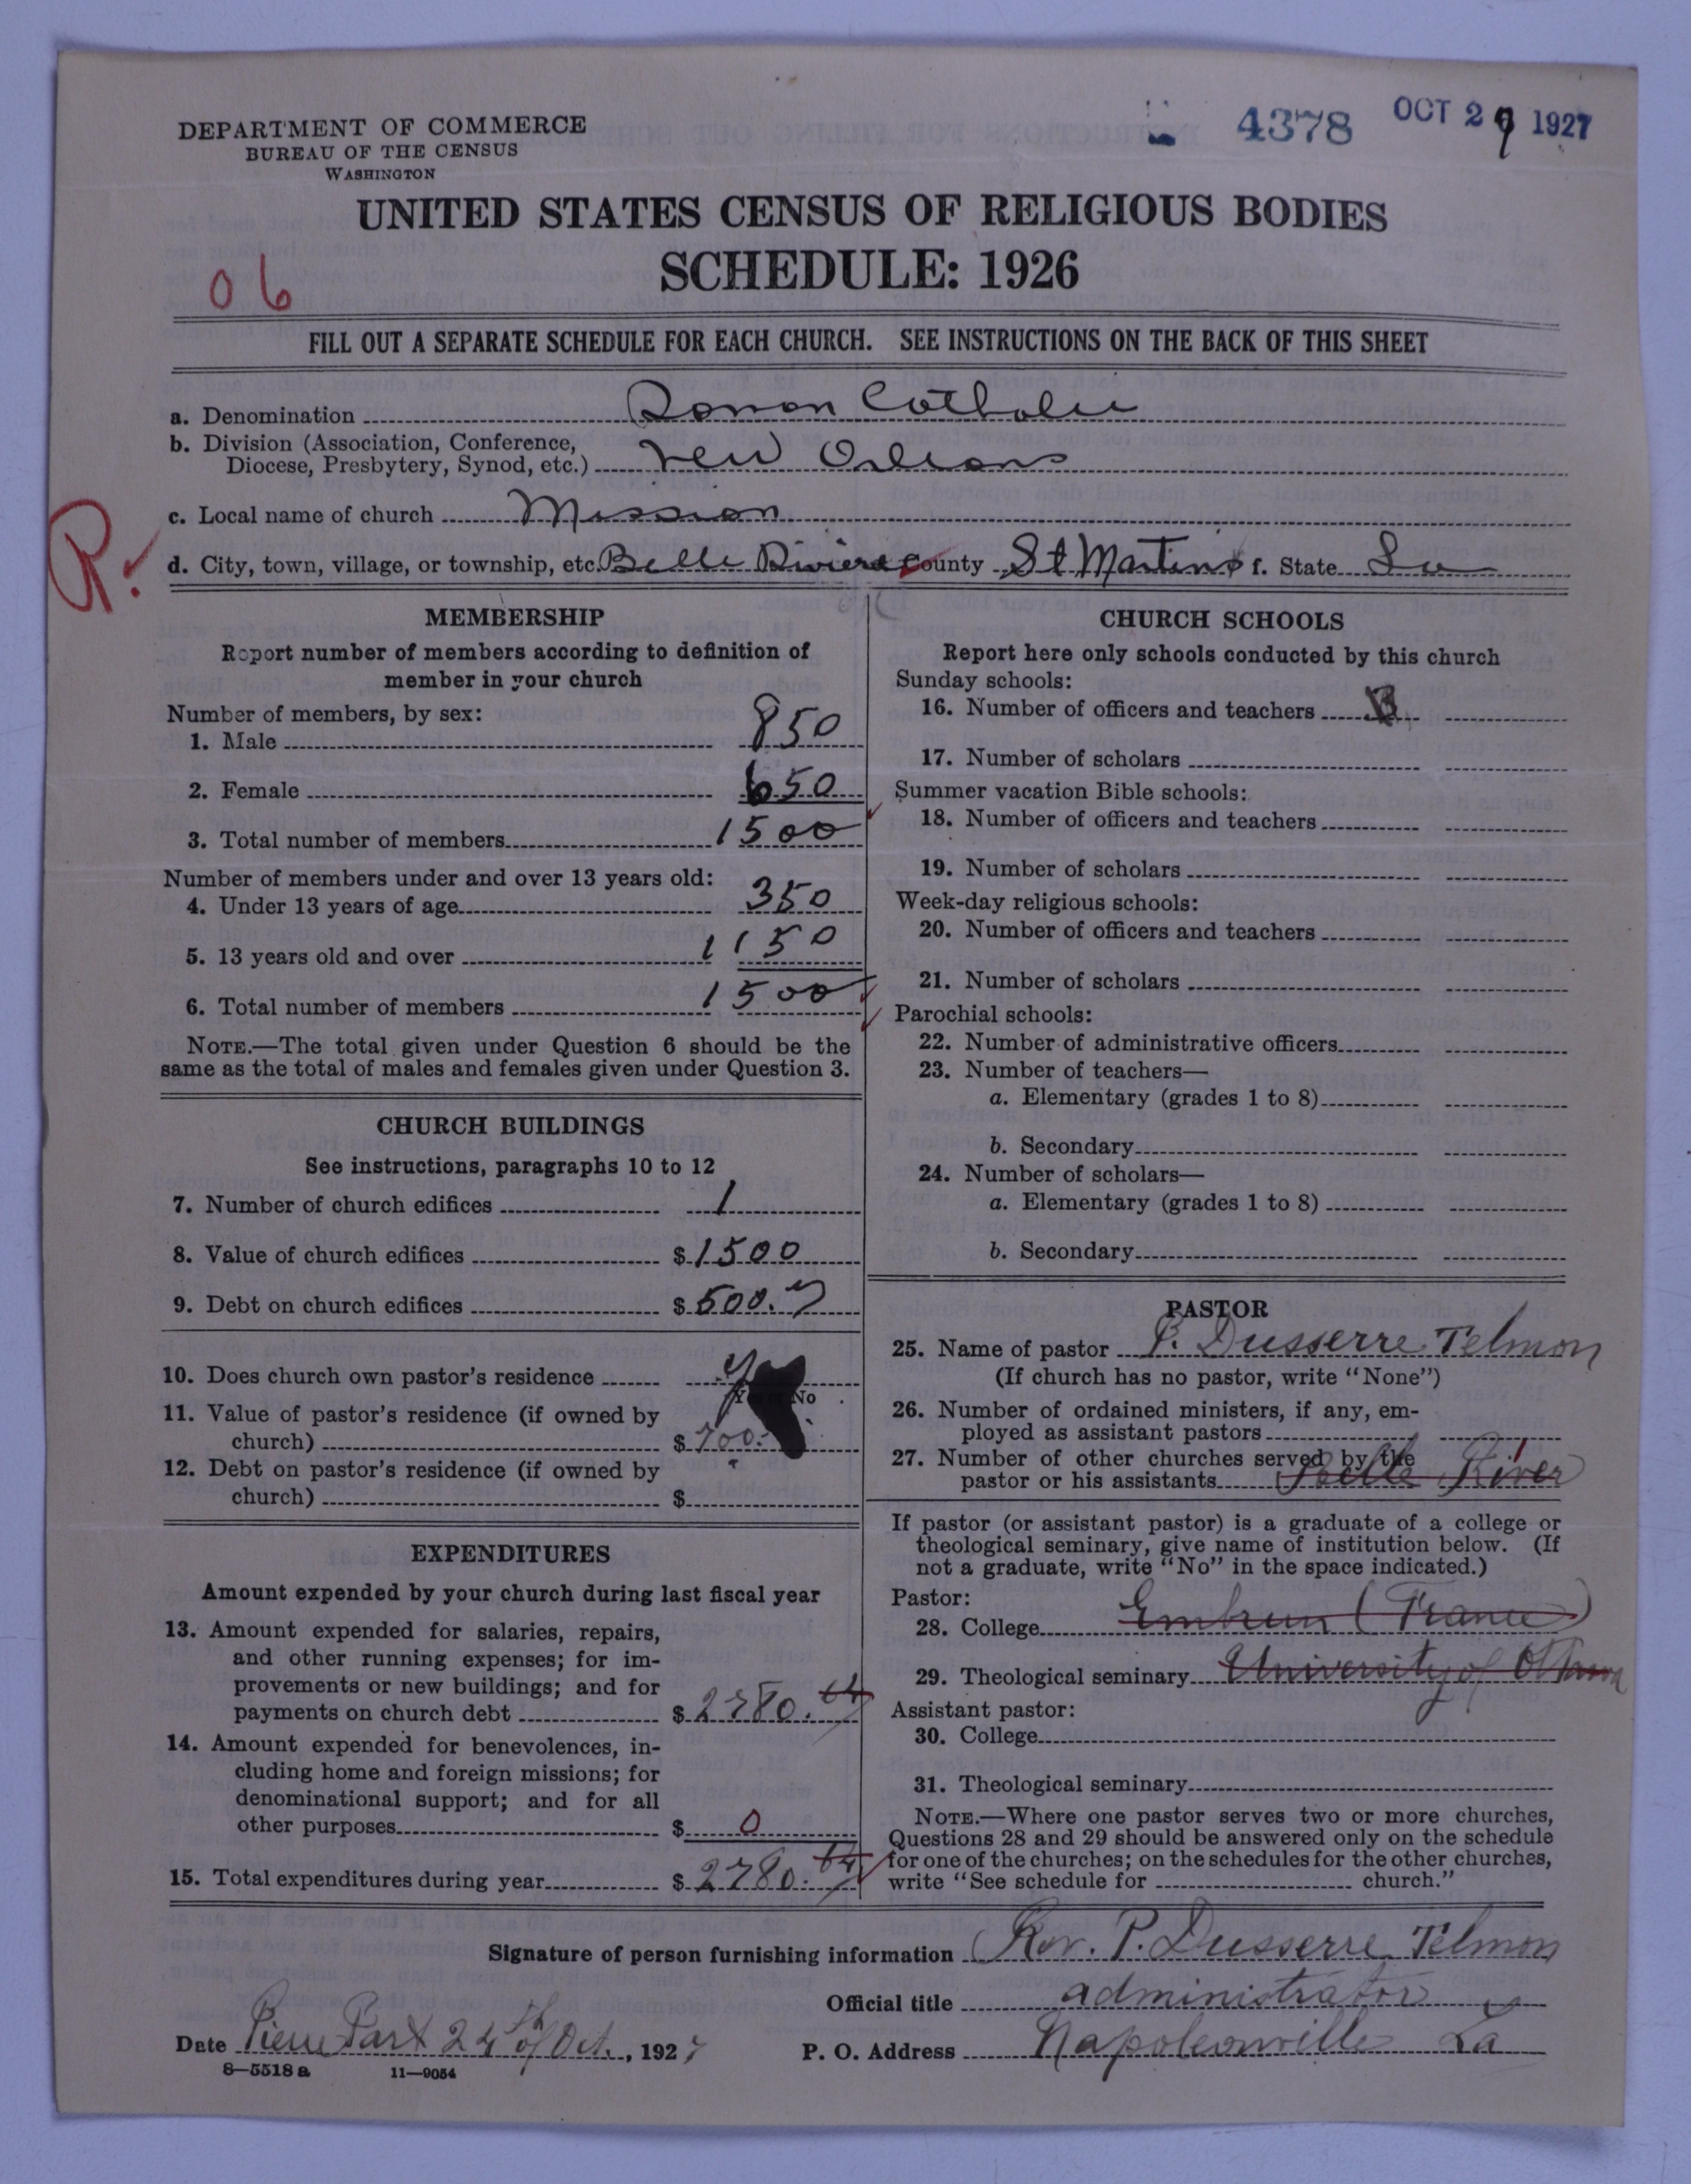 4378 OCT 27 1927
DEPARTMENT OF COMMERCE
BUREAU OF THE CENSUS
WASHINGTON
UNITED STATES CENSUS OF RELIGIOUS BODIES
SCHEDULE: 1926
06
FILL OUT A SEPARATE SCHEDULE FOR EACH CHURCH. SEE INSTRUCTIONS ON THE BACK OF THIS SHEET
a. Denomination Roman Catholic
b. Division (Association, Conference,
Diocese, Presbytery, Synod, etc.) New Orleans
c. Local name of church Mission
R.
d. City, town, village, or township, etc. Belle Riviere County St Martins f. State La
MEMBERSHIP
Report number of members according to definition of
member in your church
Number of members, by sex:
1. Male 850
2. Female 650
3. Total number of members 1500
Number of members under and over 13 years old:
4. Under 13 years of age 350
5. 13 years old and over 1150
6. Total number of members 1500
NOTE.—The total given under Question 6 should be the
same as the total of males and females given under Question 3.
CHURCH BUILDINGS
See instructions, paragraphs 10 to 12
7. Number of church edifices 1
8. Value of church edifices $1500
9. Debt on church edifices $500.
10. Does church own pastor's residence
No
11. Value of pastor's residence (if owned by
church) $700.
12. Debt on pastor's residence (if owned by
church) $
EXPENDITURES
Amount expended by your church during last fiscal year
13. Amount expended for salaries, repairs,
and other running expenses; for im-
provements or new buildings; and for
payments on church debt $2780.64
14. Amount expended for benevolences, in-
cluding home and foreign missions; for
denominational support; and for all
other purposes $0
15. Total expenditures during year $2780.64
CHURCH SCHOOLS
Report here only schools conducted by this church
Sunday schools:
16. Number of officers and teachers
17. Number of scholars
Summer vacation Bible schools:
18. Number of officers and teachers
19. Number of scholars
Week-day religious schools:
20. Number of officers and teachers
21. Number of scholars
Parochial schools:
22. Number of administrative officers
23. Number of teachers—
a. Elementary (grades 1 to 8)
b. Secondary
24. Number of scholars—
a. Elementary (grades 1 to 8)
b. Secondary
PASTOR
25. Name of pastor P. Dusserre Telmon
(If church has no pastor, write "None")
26. Number of ordained ministers, if any, em-
ployed as assistant pastors
27. Number of other churches served by the
pastor or his assistants Belle River 1
If pastor (or assistant pastor) is a graduate of a college or
theological seminary, give name of institution below. (If
not a graduate, write "No" in the space indicated.)
Pastor:
28. College Embrun (France)
29. Theological seminary University of Ottawa
Assistant pastor:
30. College
31. Theological seminary
NOTE.—Where one pastor serves two or more churches,
Questions 28 and 29 should be answered only on the schedule
for one of the churches; on the schedules for the other churches,
write "See schedule for church."
Signature of person furnishing information Rev. P. Dusserre Telmon
Official title administrator
Date Pierre Part 24th of Oct., 1927
P. O. Address Napoleonville La
8—5518a 11—9054